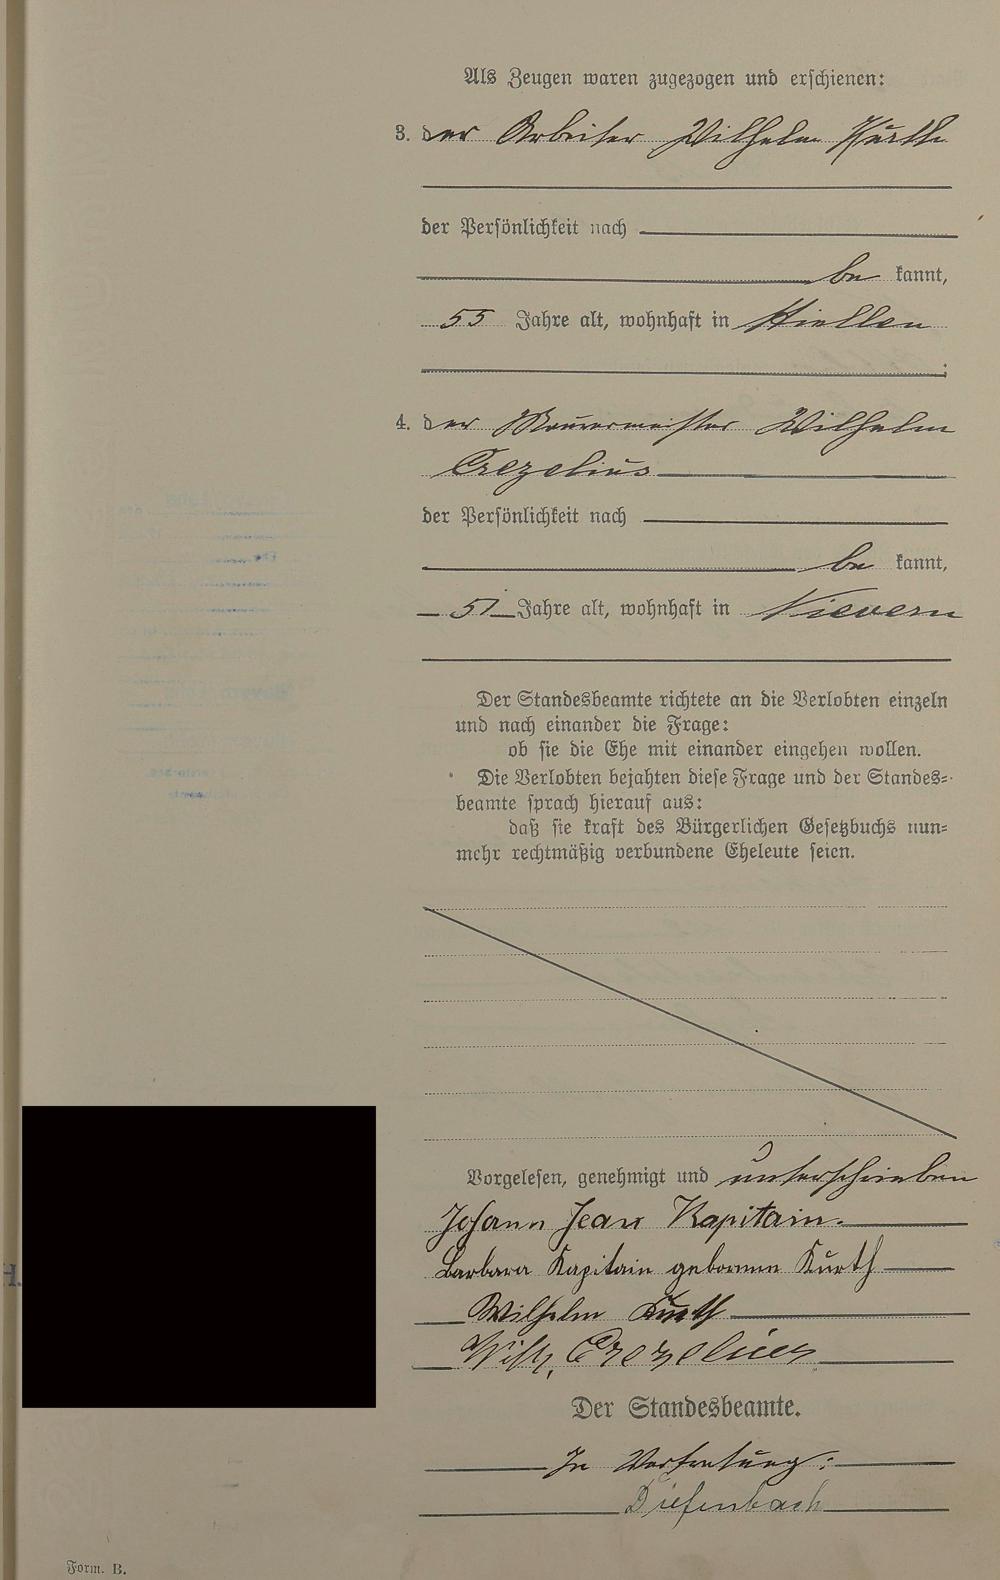 Als Zeugen waren zugezogen und erschienen:
3. der Arbeiter Wilhelm Kurth
der Persönlichkeit nach
be kannt,
55 Jahre alt, wohnhaft in
4. der Maurermeister Wilhelm
Crezelius
der Persönlichkeit nach
be kannt,
51 Jahre alt, wohnhaft in Nievern
Der Standesbeamte richtete an die Verlobten einzeln
und nach einander die Frage:
ob sie die Ehe mit einander eingehen wollen.
Die Verlobten bejahten diese Frage und der Standes=
beamte sprach hierauf aus:
daß sie kraft des Bürgerlichen Gesetzbuchs nun=
mehr rechtmäßig verbundene Eheleute seien.
Vorgelesen, genehmigt und unterschrieben
Johann Jean Kapitain.
Barbara Kapitain geborene Kurth
Wilhelm Kurth
Wilh. Crezelius
Der Standesbeamte.
In Vertretung:
Diefenbach
Form. B.